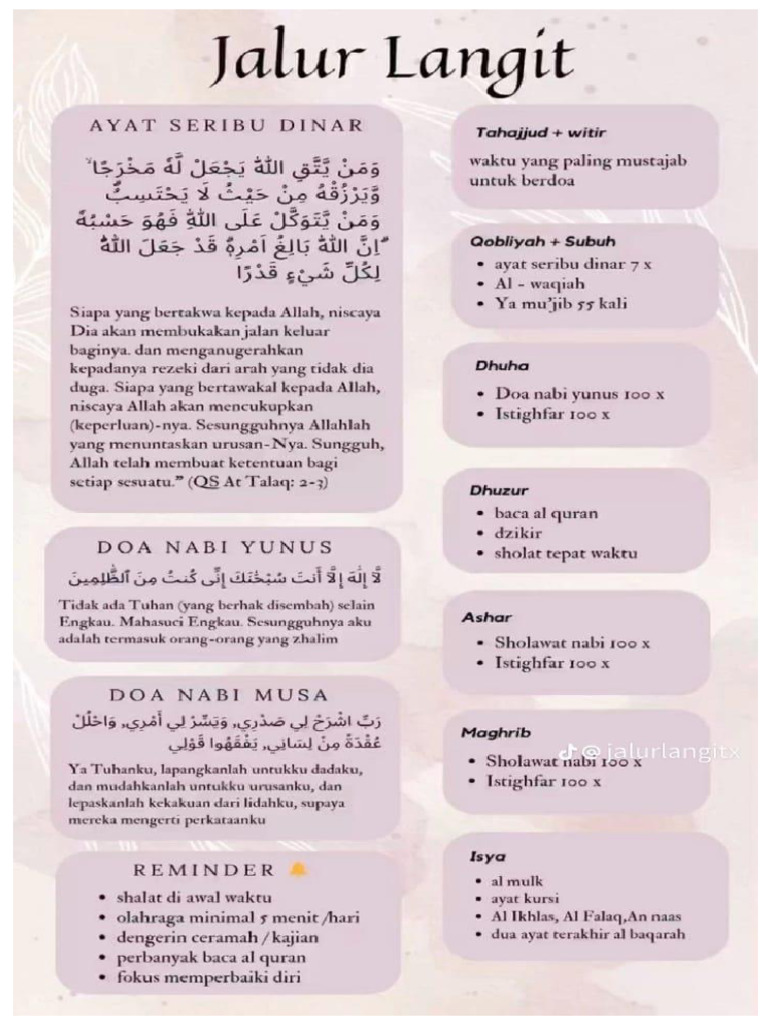 Jalur Langit
AYAT SERIBU DINAR
وَمَنْ يَّتَّقِ اللّٰهَ يَجْعَلْ لَّهٗ مَخْرَجًاۙ
وَّيَرْزُقْهُ مِنْ حَيْثُ لَا يَحْتَسِبُۗ
وَمَنْ يَّتَوَكَّلْ عَلَى اللّٰهِ فَهُوَ حَسْبُهٗ
ۗاِنَّ اللّٰهَ بَالِغُ اَمْرِهٖۗ قَدْ جَعَلَ اللّٰهُ
لِكُلِّ شَيْءٍ قَدْرًا
Siapa yang bertakwa kepada Allah, niscaya
Dia akan membukakan jalan keluar
baginya. dan menganugerahkan
kepadanya rezeki dari arah yang tidak dia
duga. Siapa yang bertawakal kepada Allah,
niscaya Allah akan mencukupkan
(keperluan)-nya. Sesungguhnya Allahlah
yang menuntaskan urusan-Nya. Sungguh,
Allah telah membuat ketentuan bagi
setiap sesuatu.” (QS At Talaq: 2-3)
DOA NABI YUNUS
لَّا إِلَٰهَ إِلَّا أَنتَ سُبْحَٰنَكَ إِنِّى كُنتُ مِنَ ٱلظَّٰلِمِينَ
Tidak ada Tuhan (yang berhak disembah) selain
Engkau. Mahasuci Engkau. Sesungguhnya aku
adalah termasuk orang-orang yang zhalim
DOA NABI MUSA
رَبِّ اشْرَحْ لِي صَدْرِي, وَيَسِّرْ لِي أَمْرِي, وَاحْلُلْ
عُقْدَةً مِنْ لِسَانِي, يَفْقَهُوا قَوْلِي
Ya Tuhanku, lapangkanlah untukku dadaku,
dan mudahkanlah untukku urusanku, dan
lepaskanlah kekakuan dari lidahku, supaya
mereka mengerti perkataanku
REMINDER 🔔
• shalat di awal waktu
• olahraga minimal 5 menit /hari
• dengerin ceramah / kajian
• perbanyak baca al quran
• fokus memperbaiki diri
Tahajjud + witir
waktu yang paling mustajab
untuk berdoa
Qobliyah + Subuh
• ayat seribu dinar 7 x
• Al - waqiah
• Ya mu'jib 55 kali
Dhuha
• Doa nabi yunus 100 x
• Istighfar 100 x
Dhuzur
• baca al quran
• dzikir
• sholat tepat waktu
Ashar
• Sholawat nabi 100 x
• Istighfar 100 x
Maghrib
@jalurlangitx
• Sholawat nabi 100 x
• Istighfar 100 x
Isya
• al mulk
• ayat kursi
• Al Ikhlas, Al Falaq,An naas
• dua ayat terakhir al baqarah